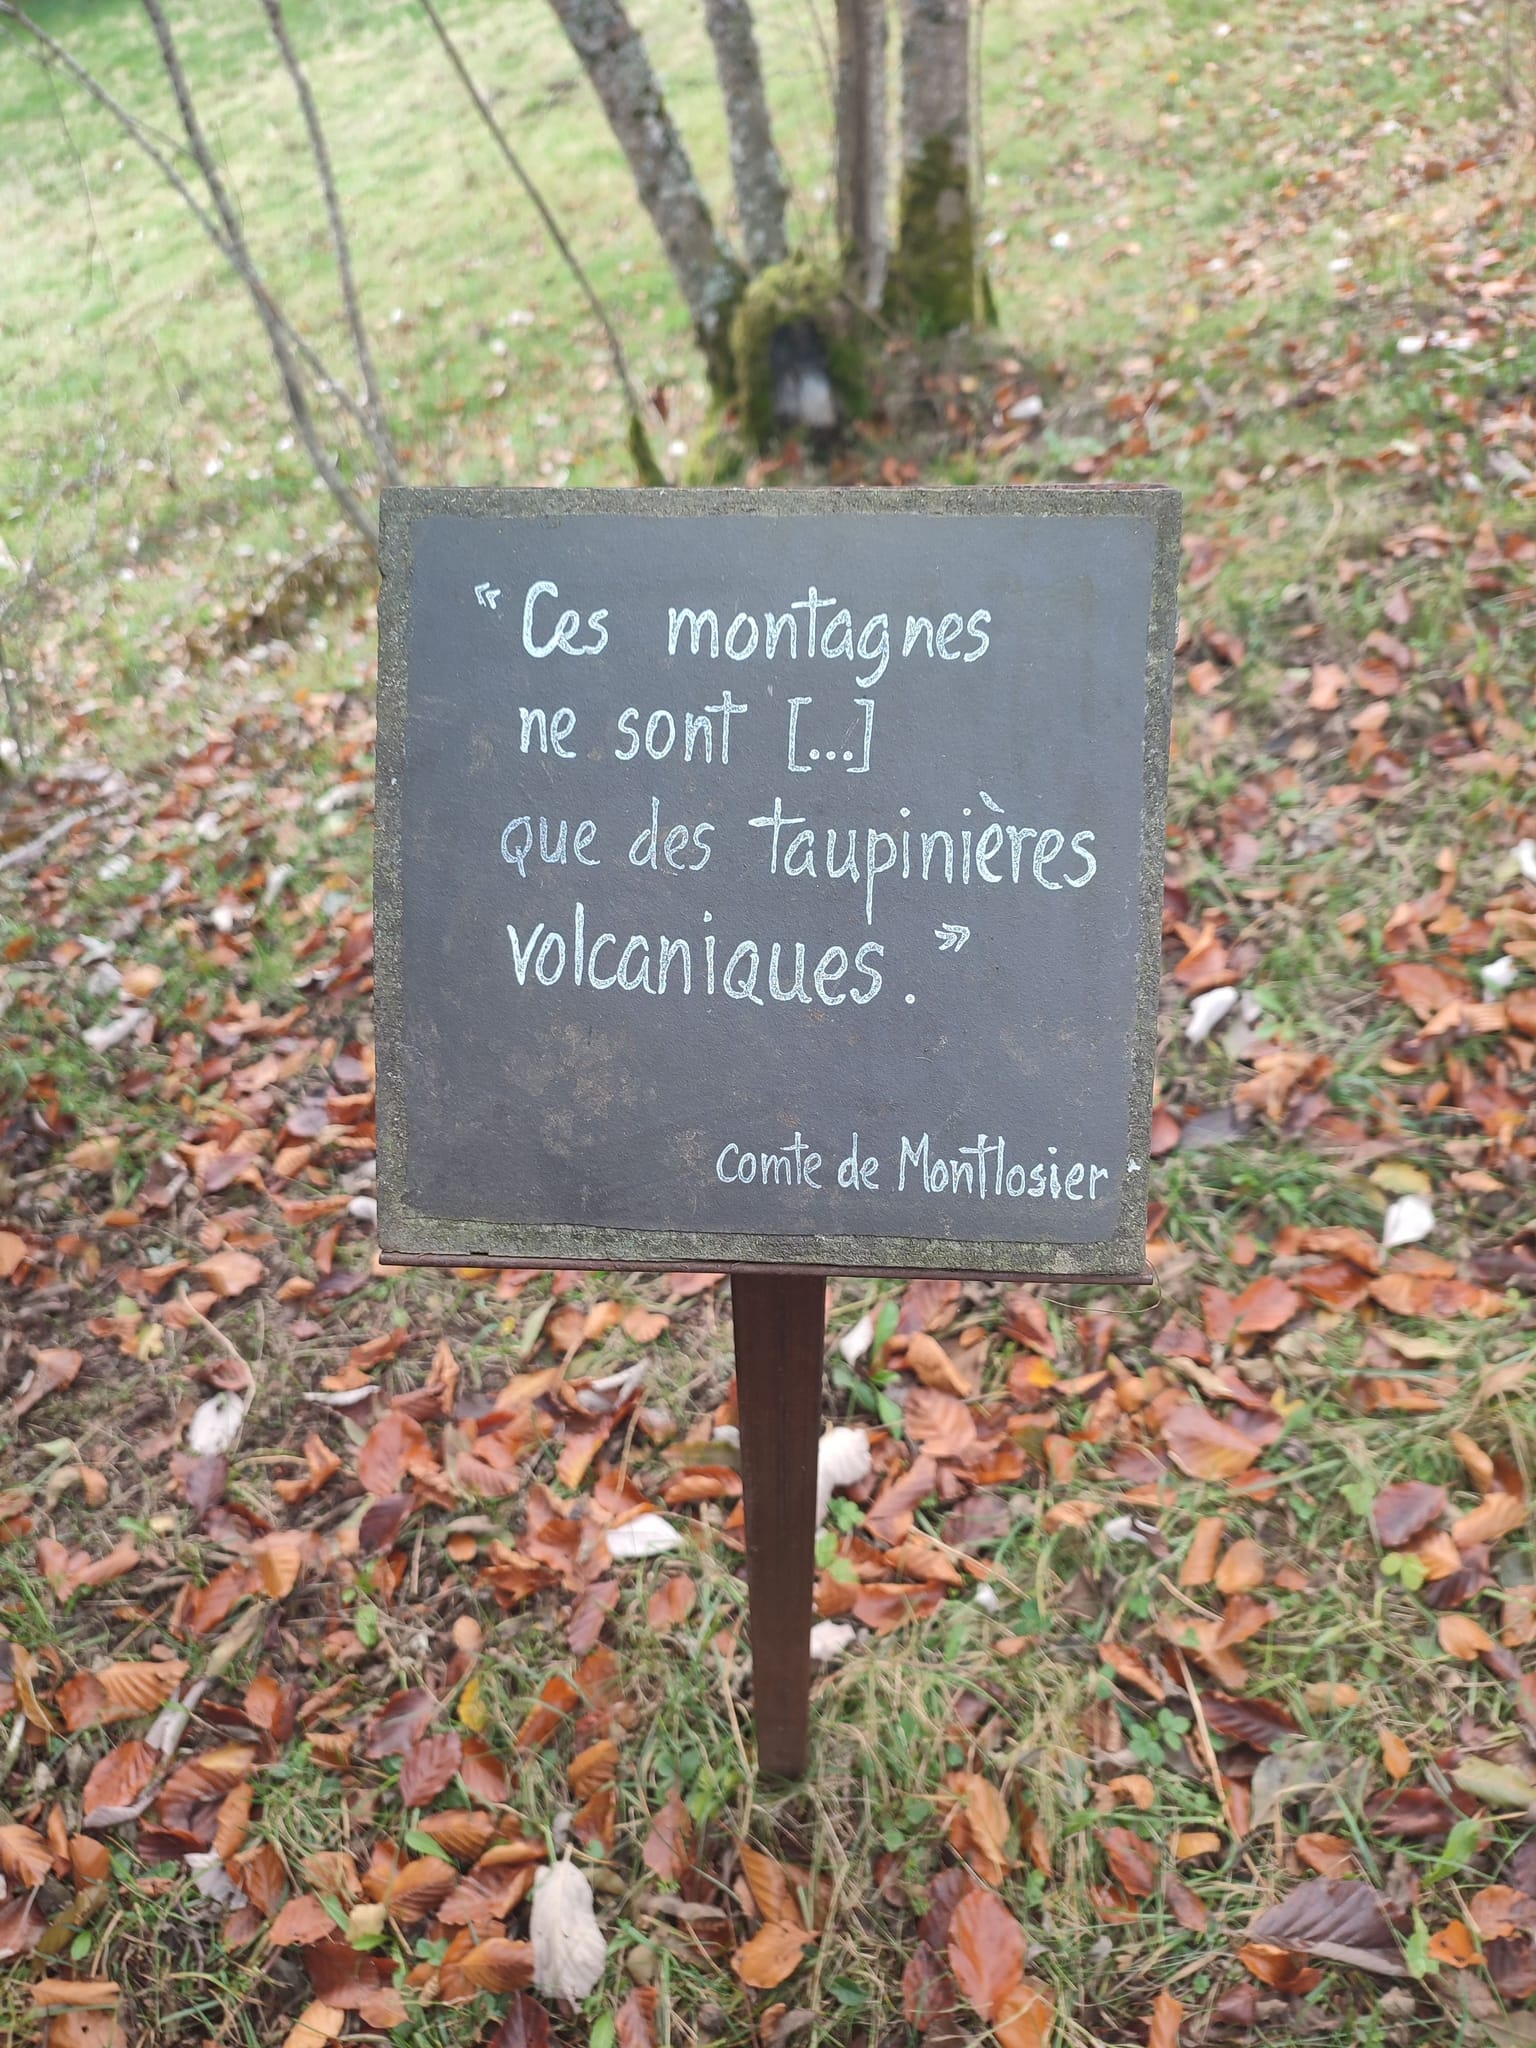 « Ces montagnes
ne sont [...]
que des taupinières
volcaniques. »
comte de Montlosier